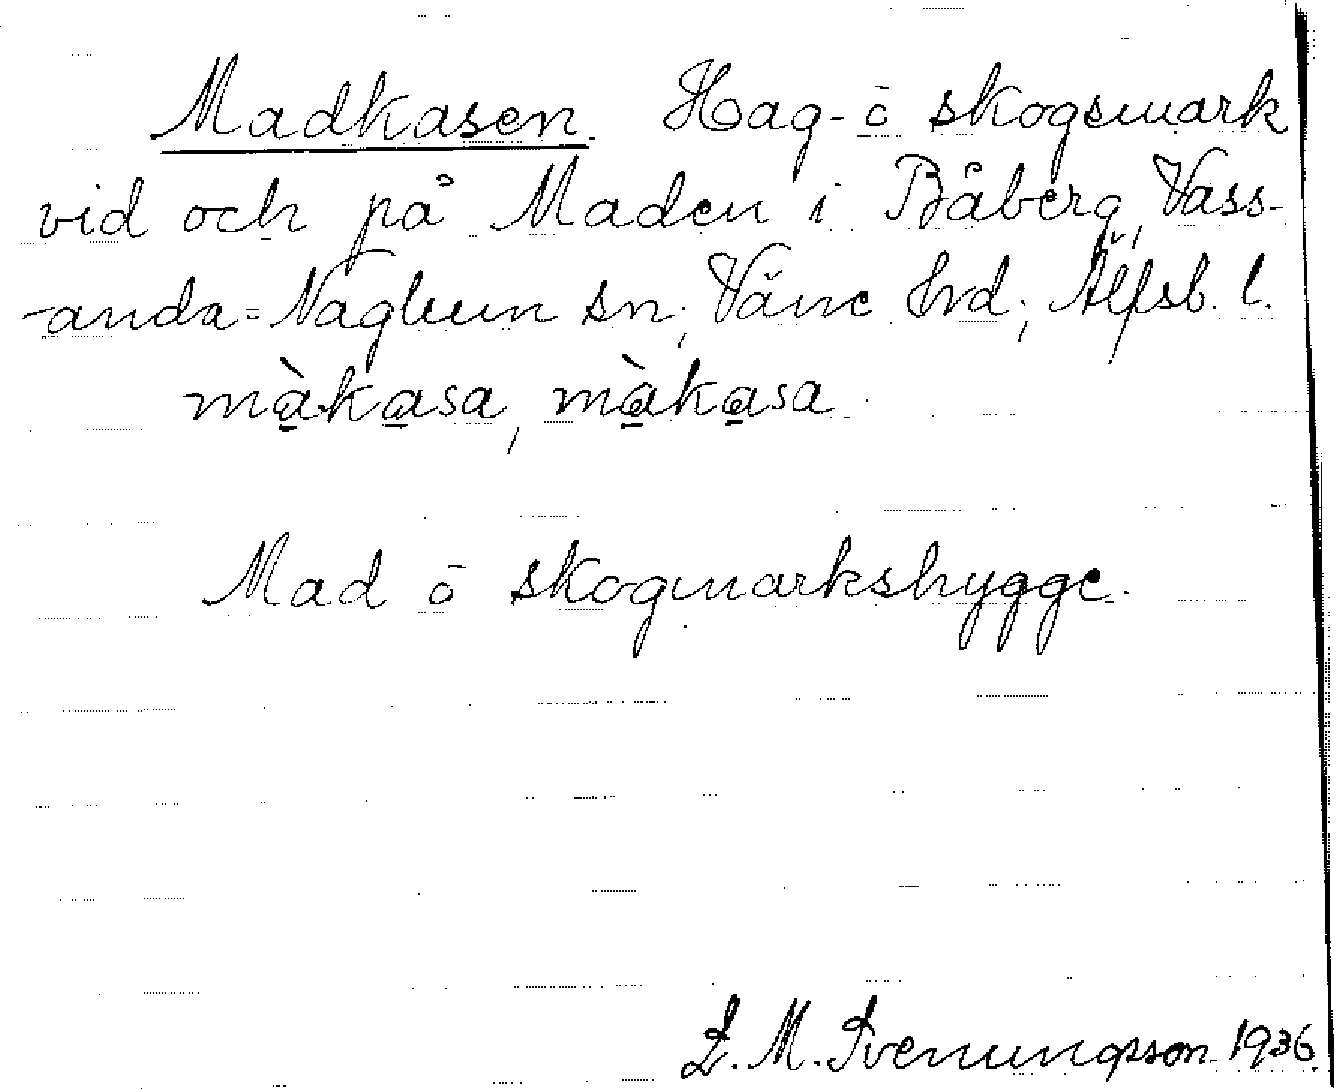 Madkasen. Hag- ō skogsmark
vid och på Maden i Båberg, Vass-
anda-Naglum sn; Väne hrd; Älfsb. l.
màkasa, màkasa.
Mad ō skogmarkshygge.
L. M. Svenungsson 1936.